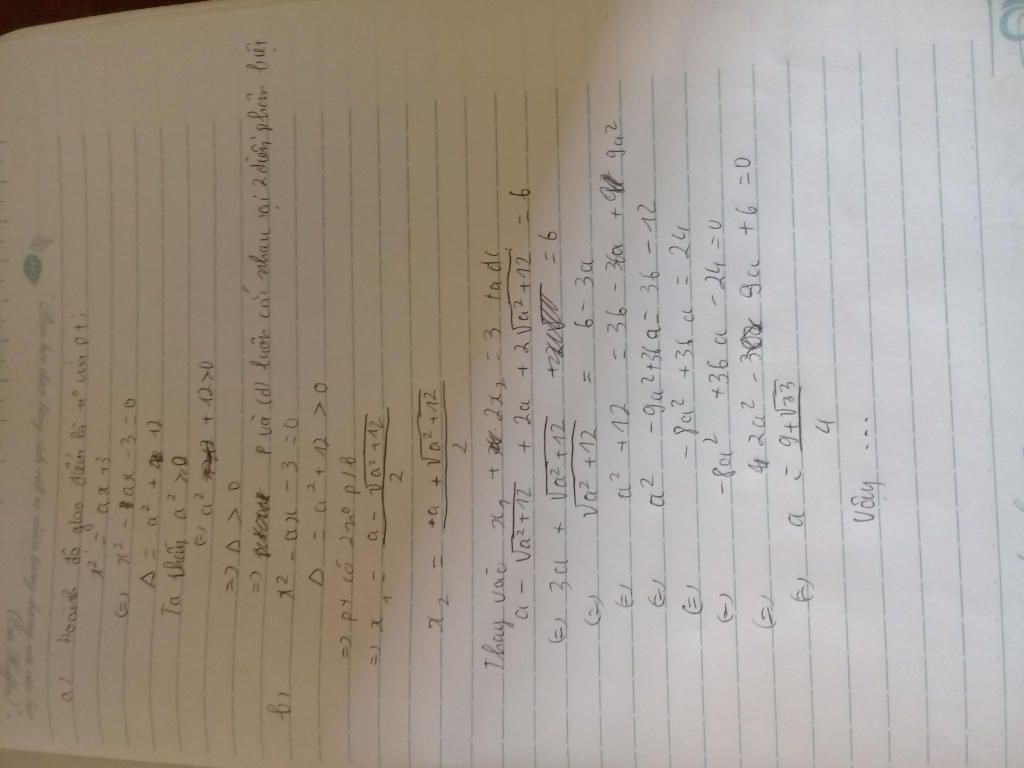 a) Hoành độ giao điểm là nº của pt:
x² = ax + 3
(=) x² - ax - 3 = 0
Δ = a² + 12
Ta thấy a² ≥ 0
(=) a² + 12 > 0
=) Δ > 0
=) P và (d) luôn cắt nhau tại 2 điểm phân biệt
b) x² - ax - 3 = 0
Δ = a² + 12 > 0
=) pt có 2 nº p/b
=) x₁ = (a - √(a² + 12))/2
x₂ = (a + √(a² + 12))/2
Thay vào x₁ + 2x₂ = 3 ta đc
a - √(a² + 12) + 2a + 2√(a² + 12) = 6
(=) 3a + √(a² + 12) = 6
(=) √(a² + 12) = 6 - 3a
(=) a² + 12 = 36 - 36a + 9a²
(=) a² - 9a² + 36a = 36 - 12
(=) - 8a² + 36a = 24
(=) - 8a² + 36a - 24 = 0
(=) 2a² - 9a + 6 = 0
(=) a = (9 ± √33)/4
Vậy ...